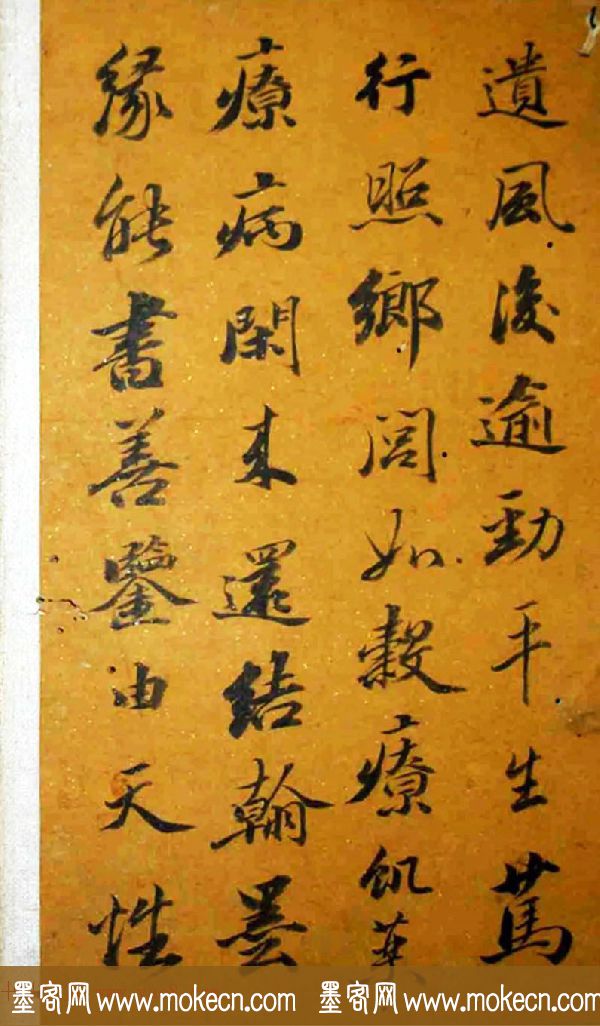 遺風後逾勁平生篤
行照鄉閭如穀療飢
療病閑来還結翰墨
緣能書善鑒由天性
墨客网 www.mokecn.com 墨客网 www.mokecn.com